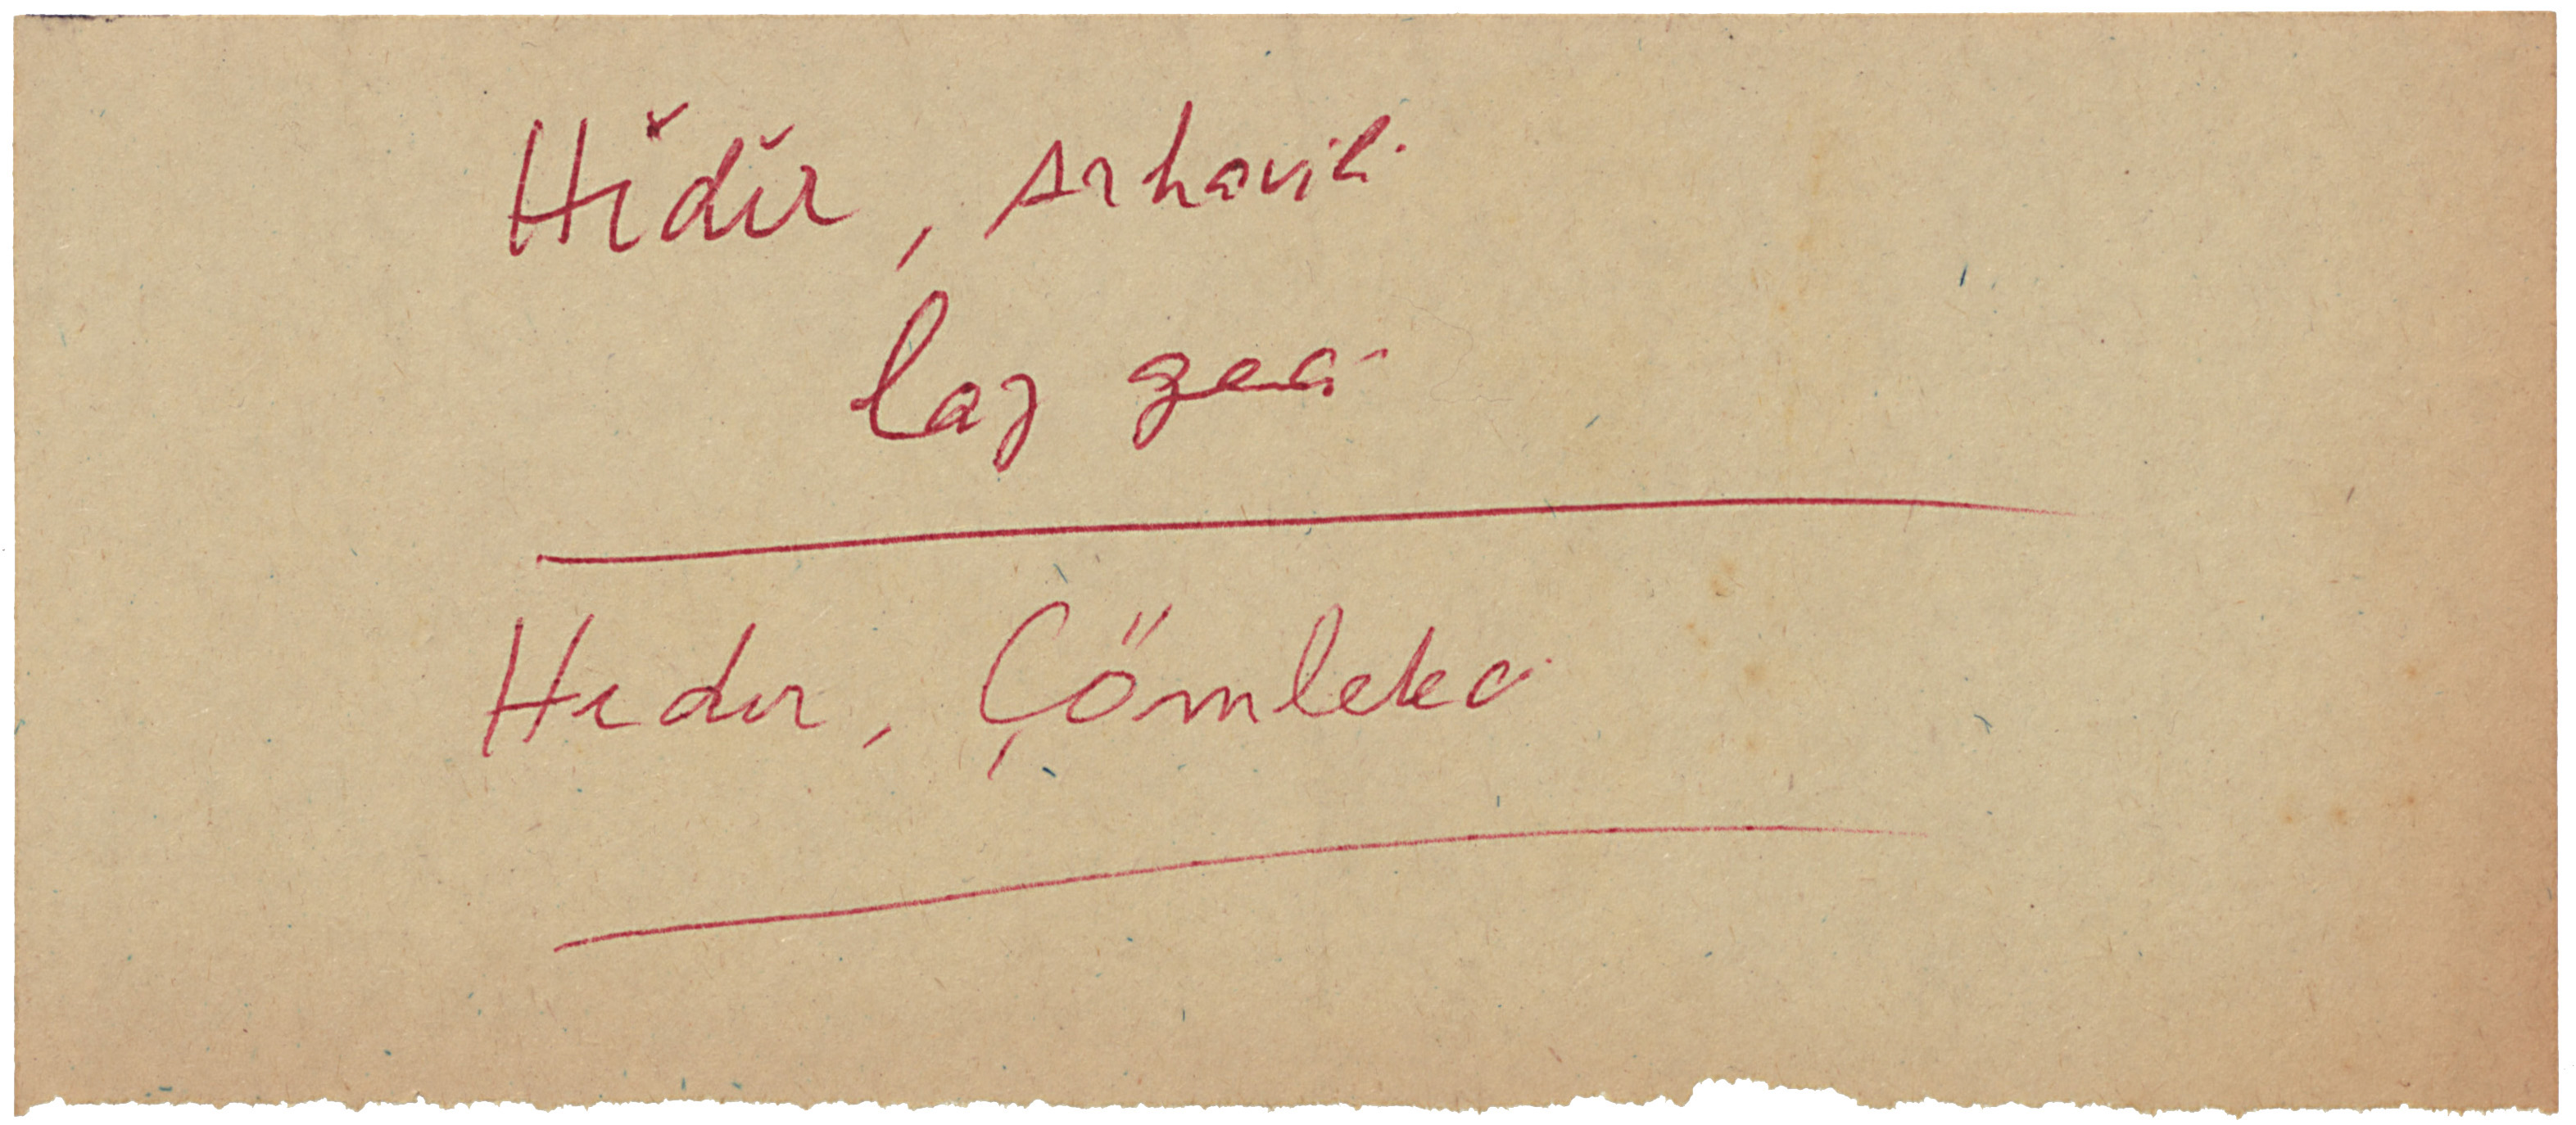 Hıdır, Arhavili
laz
Hıdır, Çömlekci